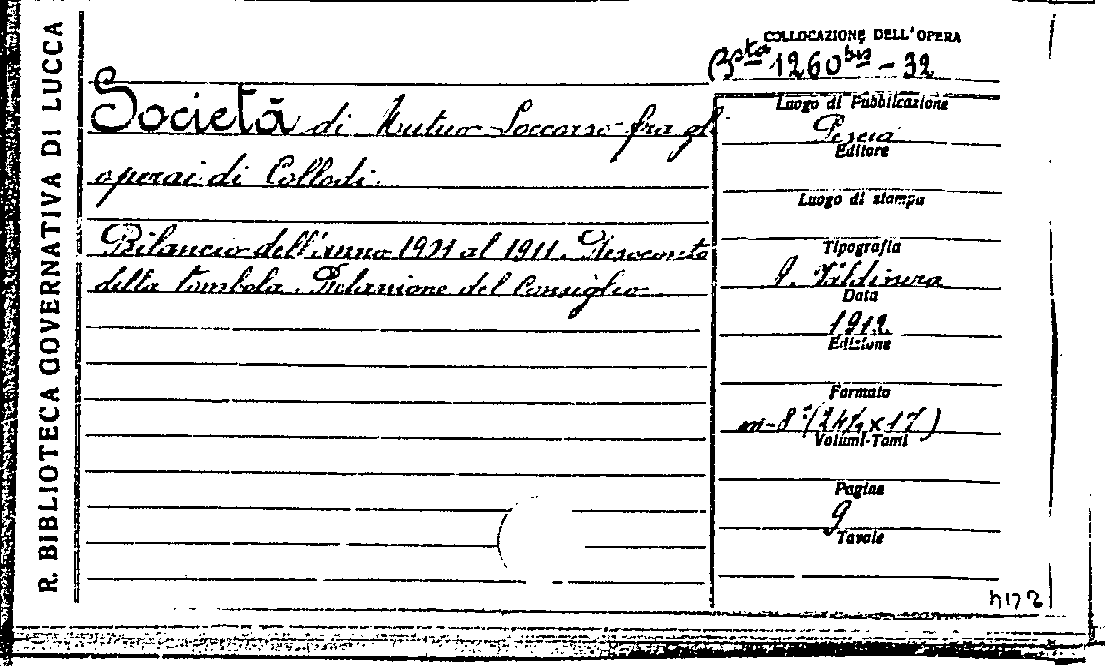 R. BIBLIOTECA GOVERNATIVA DI LUCCA
COLLOCAZIONE DELL'OPERA
Bsta 1260 bis - 32
Società di Mutuo Soccorso fra gli
operai di Collodi.
Bilancio dell'anno al 1911. Resoconto
della tombola. Relazione del Consiglio
Luogo di Pubblicazione
Pescia
Editore
Luogo di stampa
Tipografia
Data
1912
Edizione
Formato
in-8° (24½ x 17)
Volumi-Tomi
Pagine
9
Tavole